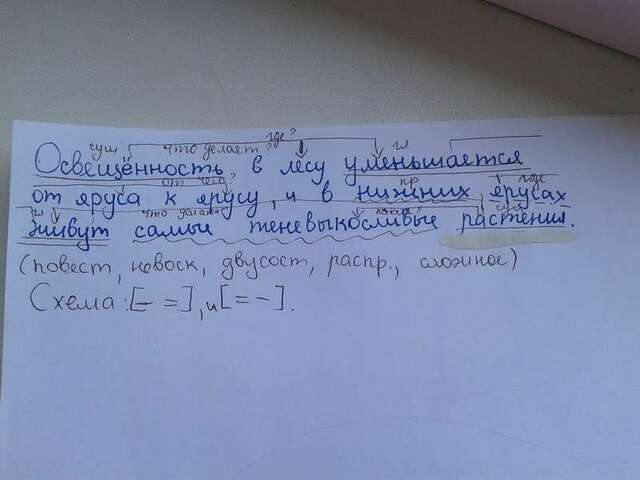 где?
сущ что делает? гл
Освещённость, в лесу уменьшается
от чего? пр где
от яруса к ярусу, и в нижних ярусах
гл что делают сущ
живут самые теневыкосливые растения.
(повест, невоск, двусост, распр., сложное)
Схема: [– =], и [= –].